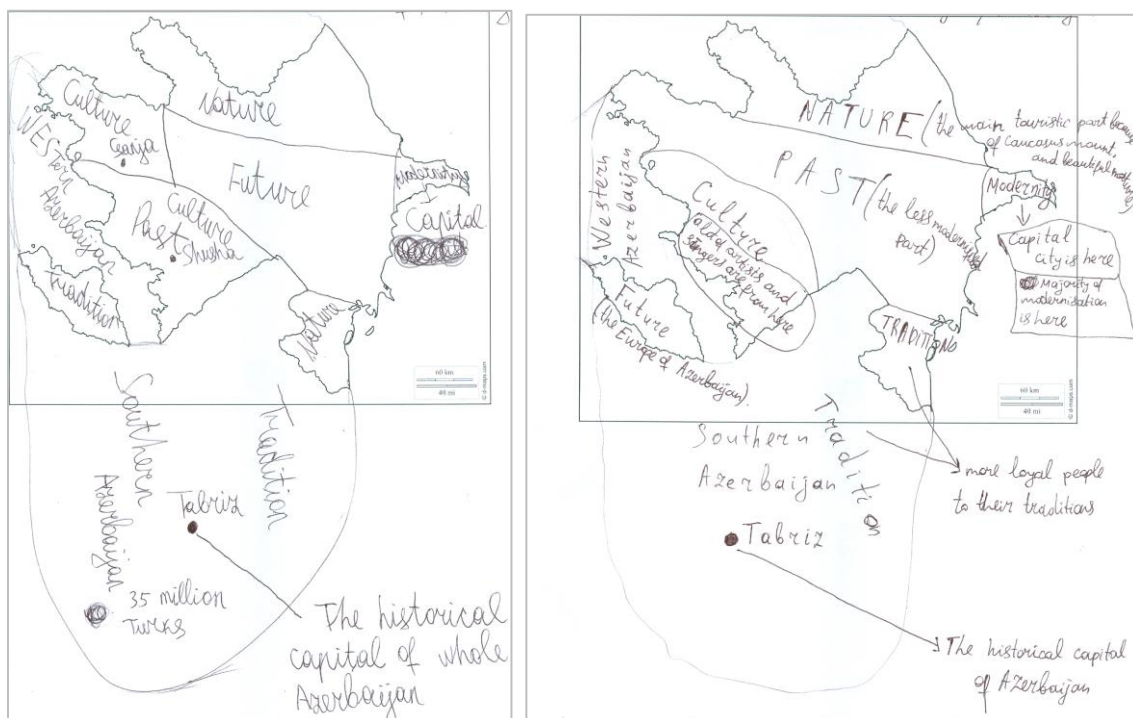 Culture
Ganja
Nature
Future
WESTern
Azerbaijan
Culture
Past
Shusha
Modernity
Capital
Tradition
Nature
60 km
40 mi
© d-maps.com
Southern
Azerbaijan
Tradition
Tabriz
35 million
Turks
The historical
capital of whole
Azerbaijan
NATURE (the main touristic part because
of Caucasus mount,
and beautiful
PAST (the less modernised
part)
Modernity
Capital
city is here
Majority of
modernisation
is here
Western
Azerbaijan
Culture
a lot of artists and
singers are from here
Future
(the Europe of
Azerbaijan).
TRADITIONS
60 km
40 mi
© d-maps.com
Southern
Azerbaijan
Tradition
more loyal people
to their traditions
Tabriz
The historical capital
of Azerbaijan